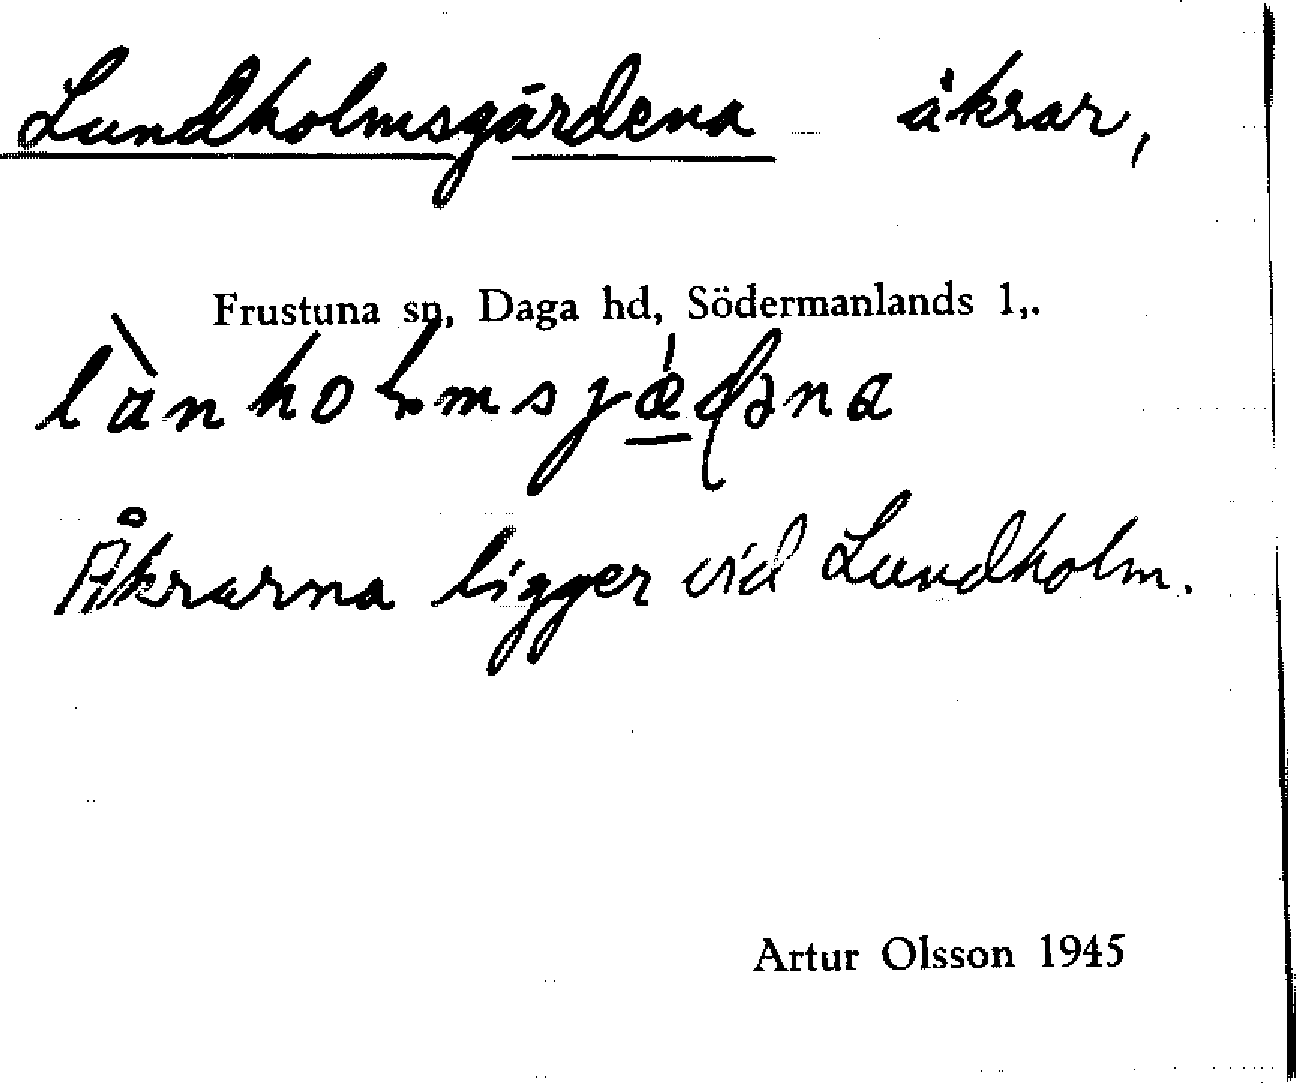 Lundholmsgärdena åkrar,
Frustuna sn, Daga hd, Södermanlands l,.
Åkrarna ligger vid Lundholm.
Artur Olsson 1945